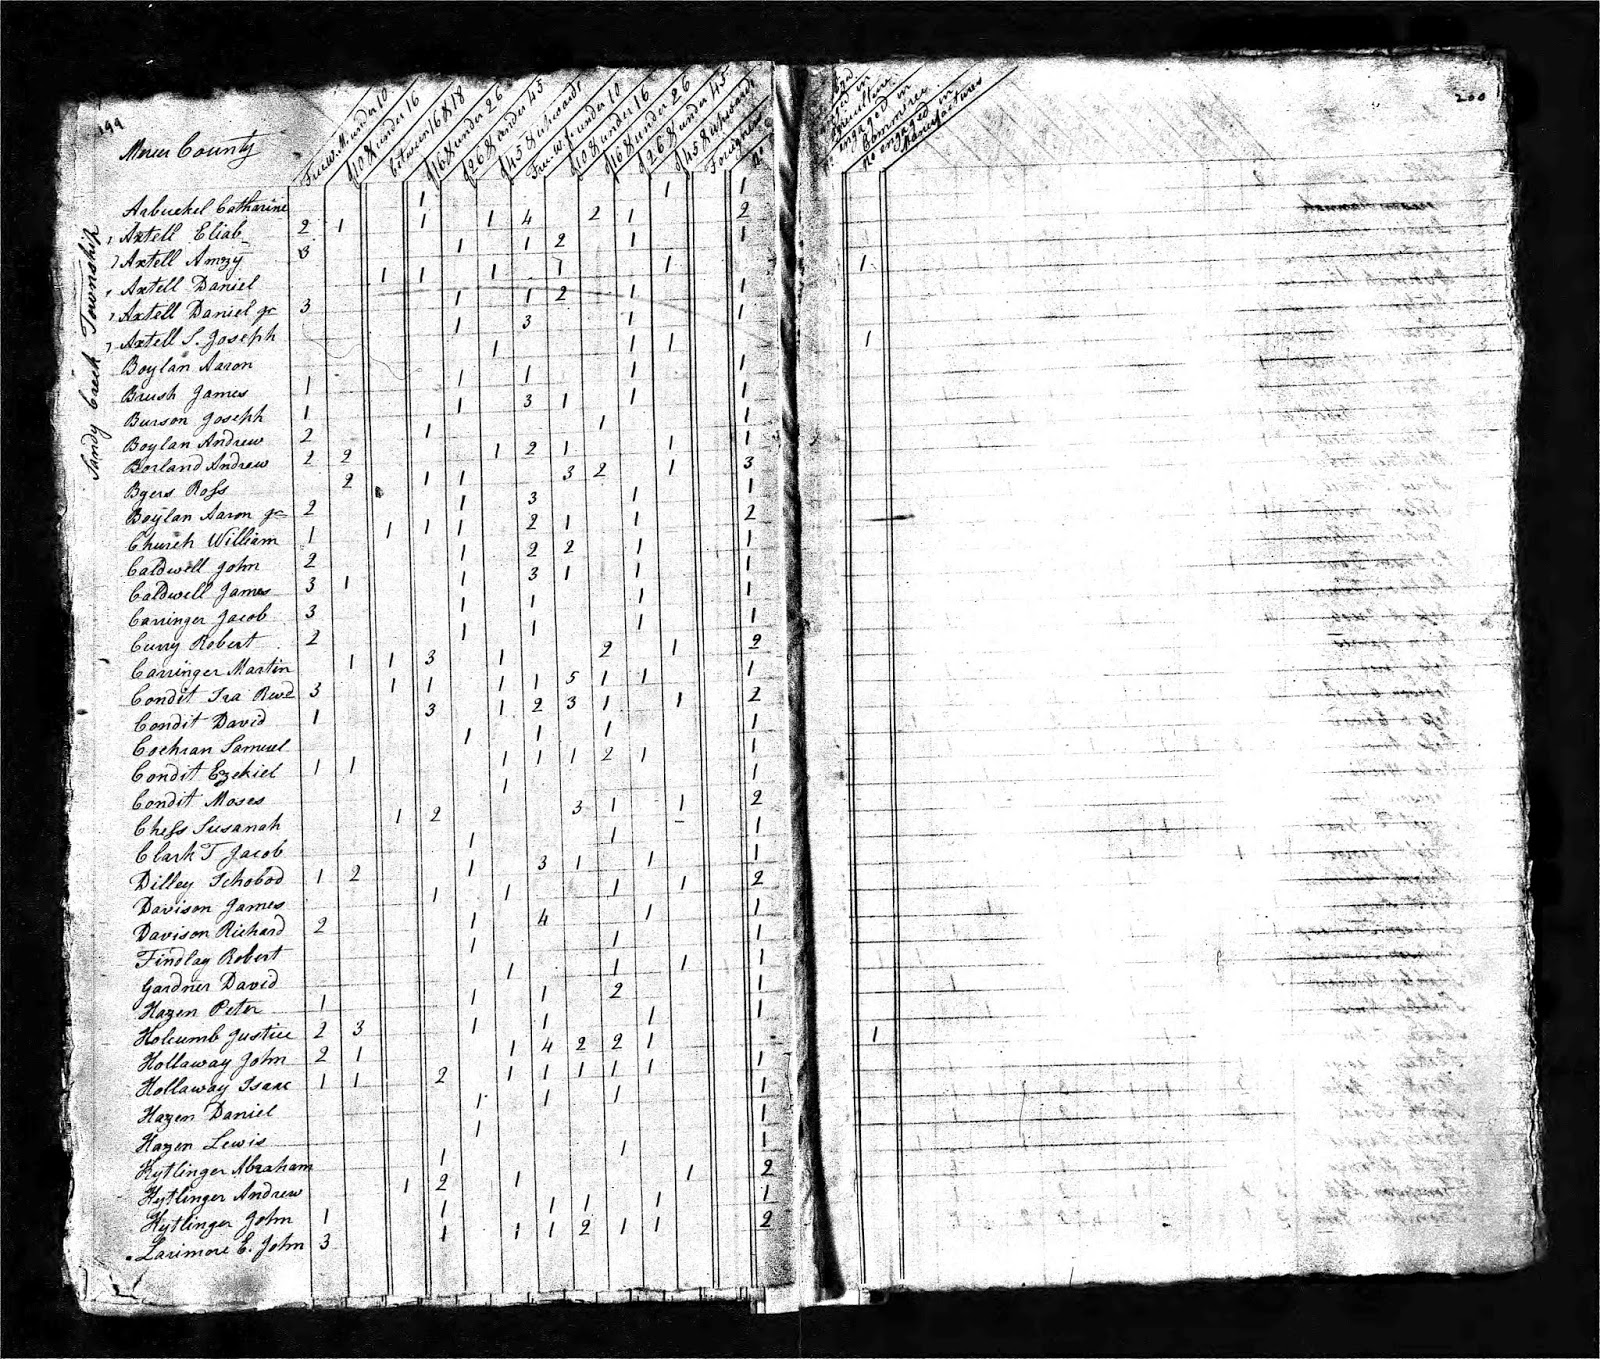 199
200
Mercer County
Sandy Creek Township
Free w. M. under 10
of 10 & under 16
between 16 & 18
of 16 & under 26
of 26 & under 45
of 45 & upwards
Free w. f. under 10
of 10 & under 16
of 16 & under 26
of 26 & under 45
of 45 & upwards
Foreigners
no engaged in Commerce
no engaged in Manufactures
Arbuckel Catharine 1 1 1
Axtell Eliab 2 1 1 1 4 2 1 2
Axtell Amzy 3 1 1 2 1 1
Axtell Daniel 1 1 1 1 1 1
Axtell Daniel jr 3 1 1 2 1 1
Axtell S. Joseph 1 3 1 1
Boylan Aaron 1 1 1 1
Brush James 1 1 1 1 1
Burson Joseph 1 1 3 1 1 1
Boylan Andrew 2 1 1 1
Borland Andrew 2 2 1 2 1 1 1
Byers Ross 2 1 1 3 2 1 3
Boylan Aaron jr 2 1 3 1 1
Church William 1 1 1 1 2 1 1 2
Caldwell John 2 1 2 2 1 1
Caldwell James 3 1 1 3 1 1 1
Carringer Jacob 3 1 1 1 1
Curry Robert 2 1 1 1 1
Carringer Martin 1 1 3 1 2 1 2
Condit Ira Revd 3 1 1 1 1 5 1 1 1
Condit David 1 3 1 2 3 1 1 2
Cochran Samuel 1 1 1 1
Condit Ezekiel 1 1 1 1 1 2 1 1
Condit Moses 1 1
Chess Susanah 1 2 3 1 1 2
Clark T Jacob 1 1 1
Dilley Ichobod 1 2 1 3 1 1 1
Davison James 1 1 1 1 2
Davison Richard 2 1 4 1 1
Findlay Robert 1 1 1
Gardner David 1 1 1 1
Hazen Peter 1 1 1 2 1
Holcumb Justice 2 3 1 1 1 1
Hollaway John 2 1 1 4 2 2 1 1
Hollaway Isaac 1 1 2 1 1 1 1 1 1
Hazen Daniel 1 1 1 1
Hazen Lewis 1 1
Hytlinger Abraham 1 1 1
Hytlinger Andrew 1 2 1 1 2
Hytlinger John 1 1 1 1 1 1
Larimore E. John 3 1 1 1 2 1 1 2